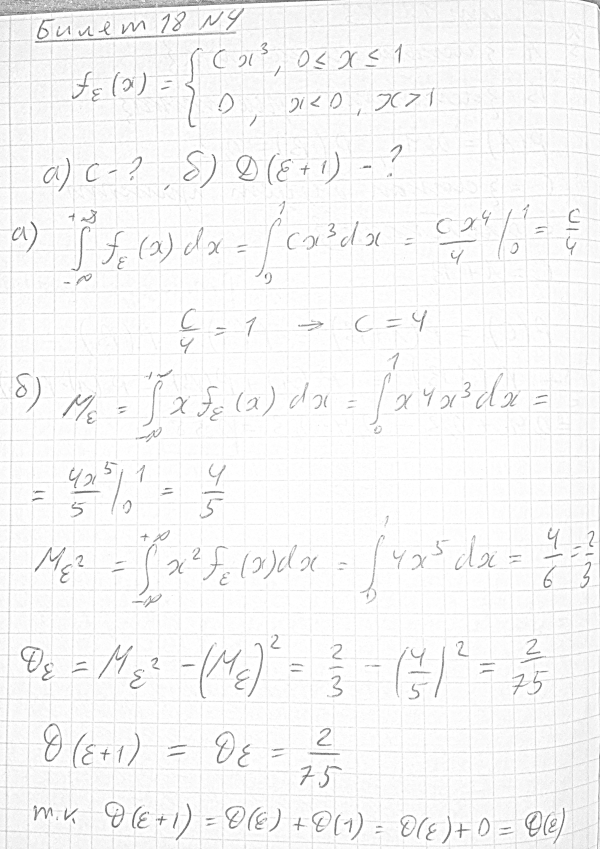 Билет 18 №4
f_ε(x) = { Cx³, 0 ≤ x ≤ 1
0, x<0, x>1
а) C - ?, б) D(ε+1) - ?
а) ∫_{-∞}^{+∞} f_ε(x) dx = ∫_0^1 Cx³dx = Cx⁴/4 |_0^1 = C/4
C/4 = 1 → C = 4
б) M_ε = ∫_{-∞}^{+∞} x f_ε(x) dx = ∫_0^1 x 4x³dx =
= 4x⁵/5 |_0^1 = 4/5
M_ε² = ∫_{-∞}^{+∞} x² f_ε(x)dx = ∫_0^1 4x⁵ dx = 4/6 = 2/3
D_ε = M_ε² - (M_ε)² = 2/3 - (4/5)² = 2/75
D(ε+1) = Dε = 2/75
т.к. D(ε+1) = D(ε) + D(1) = D(ε) + 0 = D(ε)